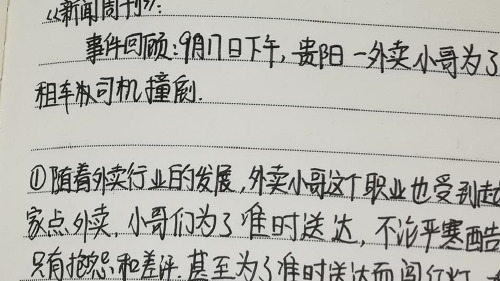 《新闻周刊》:
事件回顾:9月17日下午,贵阳一外卖小哥为了
租车 司机撞倒.
①随着外卖行业的发展,外卖小哥这个职业也受到
家点外卖,小哥们为了准时送达,不论严寒酷
只有抱怨和差评.甚至为了准时送达而闯红灯